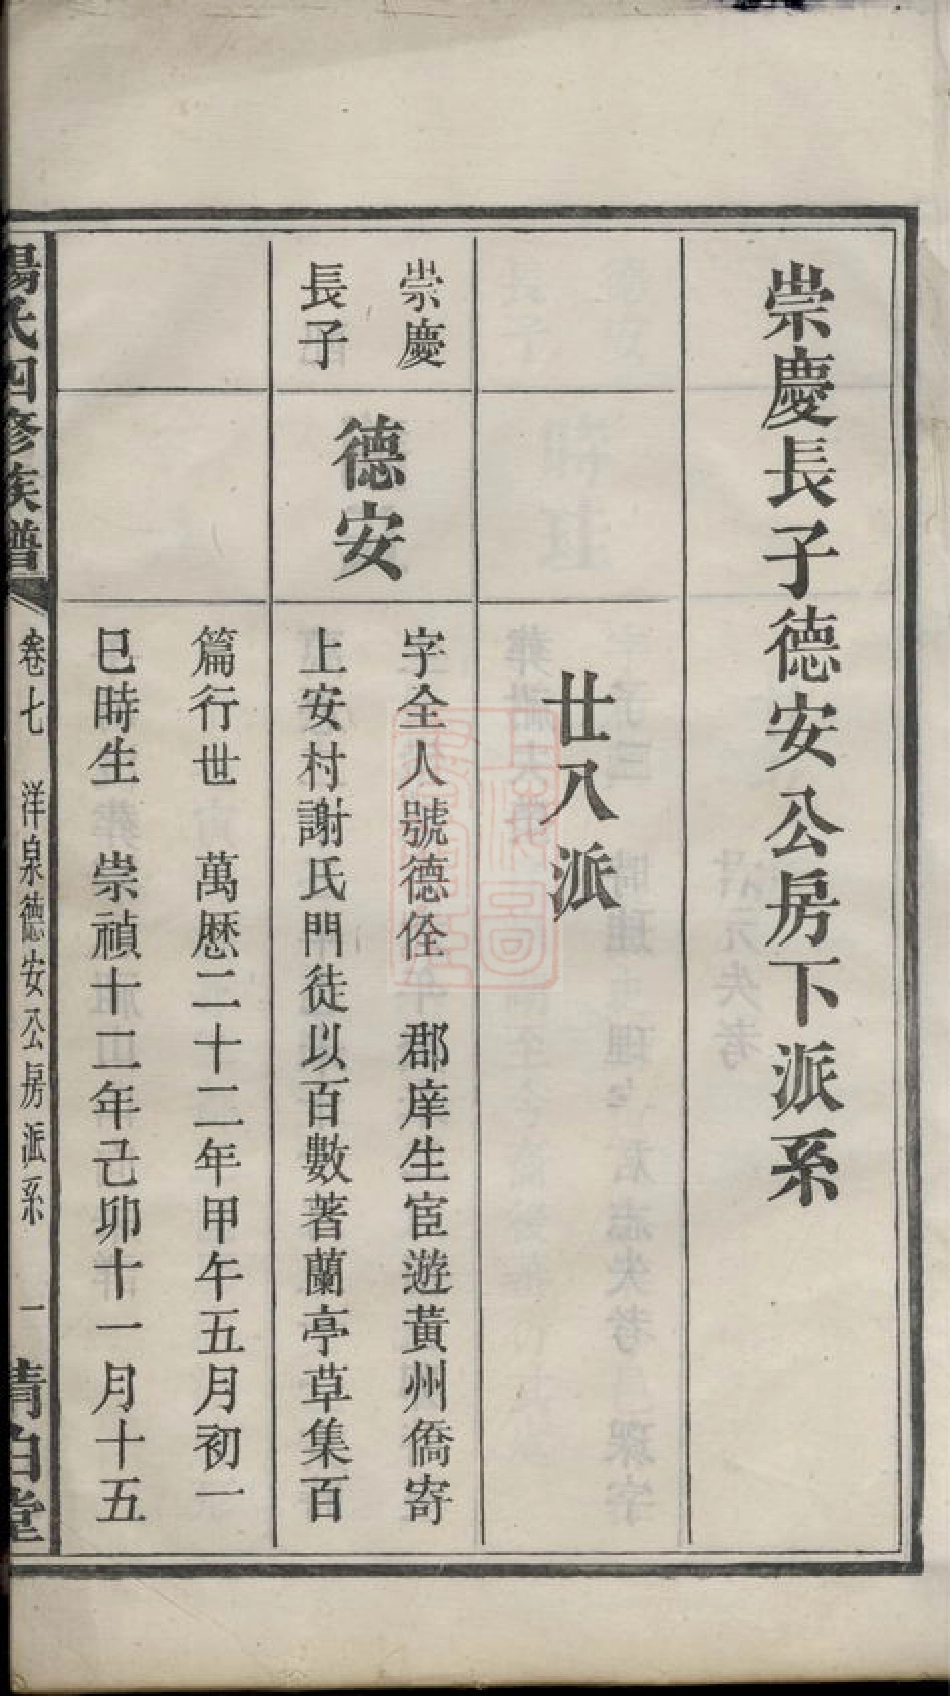 崇慶長子德安公房下派系
廿八派
崇慶
長子
德安
字全人號德佺　郡庠生宦遊黃州僑寄
上安村謝氏門徒以百數著蘭亭草集百
篇行世　萬歷二十二年甲午五月初一
巳時生　崇禎十二年己卯十一月十五
楊氏四修族譜
卷七　洋泉德安公房派系　一
清白堂